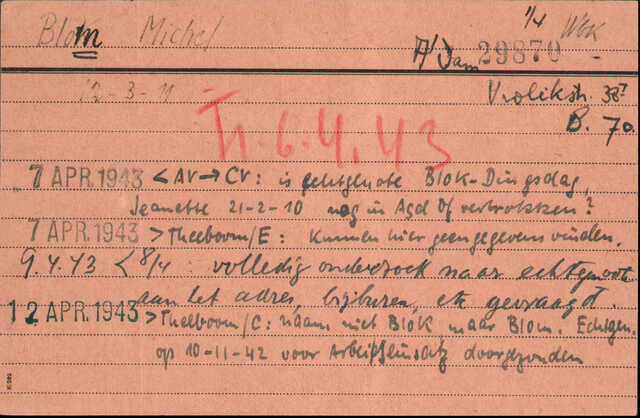 Blom Michel
1/4 WbK
A/Dam 29870 -
12-3-11 Vrolikstr. 38?
B. 70
Tr. 6.4.43
7 APR. 1943 < AV → CV: is echtgenote Blok-Dingsdag,
Jeanette 21-2-10 nog in Asd of vertrokken?
7 APR. 1943 > Theeboom/E: Kunnen hier geen gegevens vinden.
9.4.43 < 8/4: volledig onderzoek naar echtgenoote
aan het adres, bijburen, etc gevraagd.
12 APR. 1943 > Theeboom/C: naam niet Blok maar Blom. Echtgen.
op 10-11-42 voor Arbeitseinsatz doorgezonden